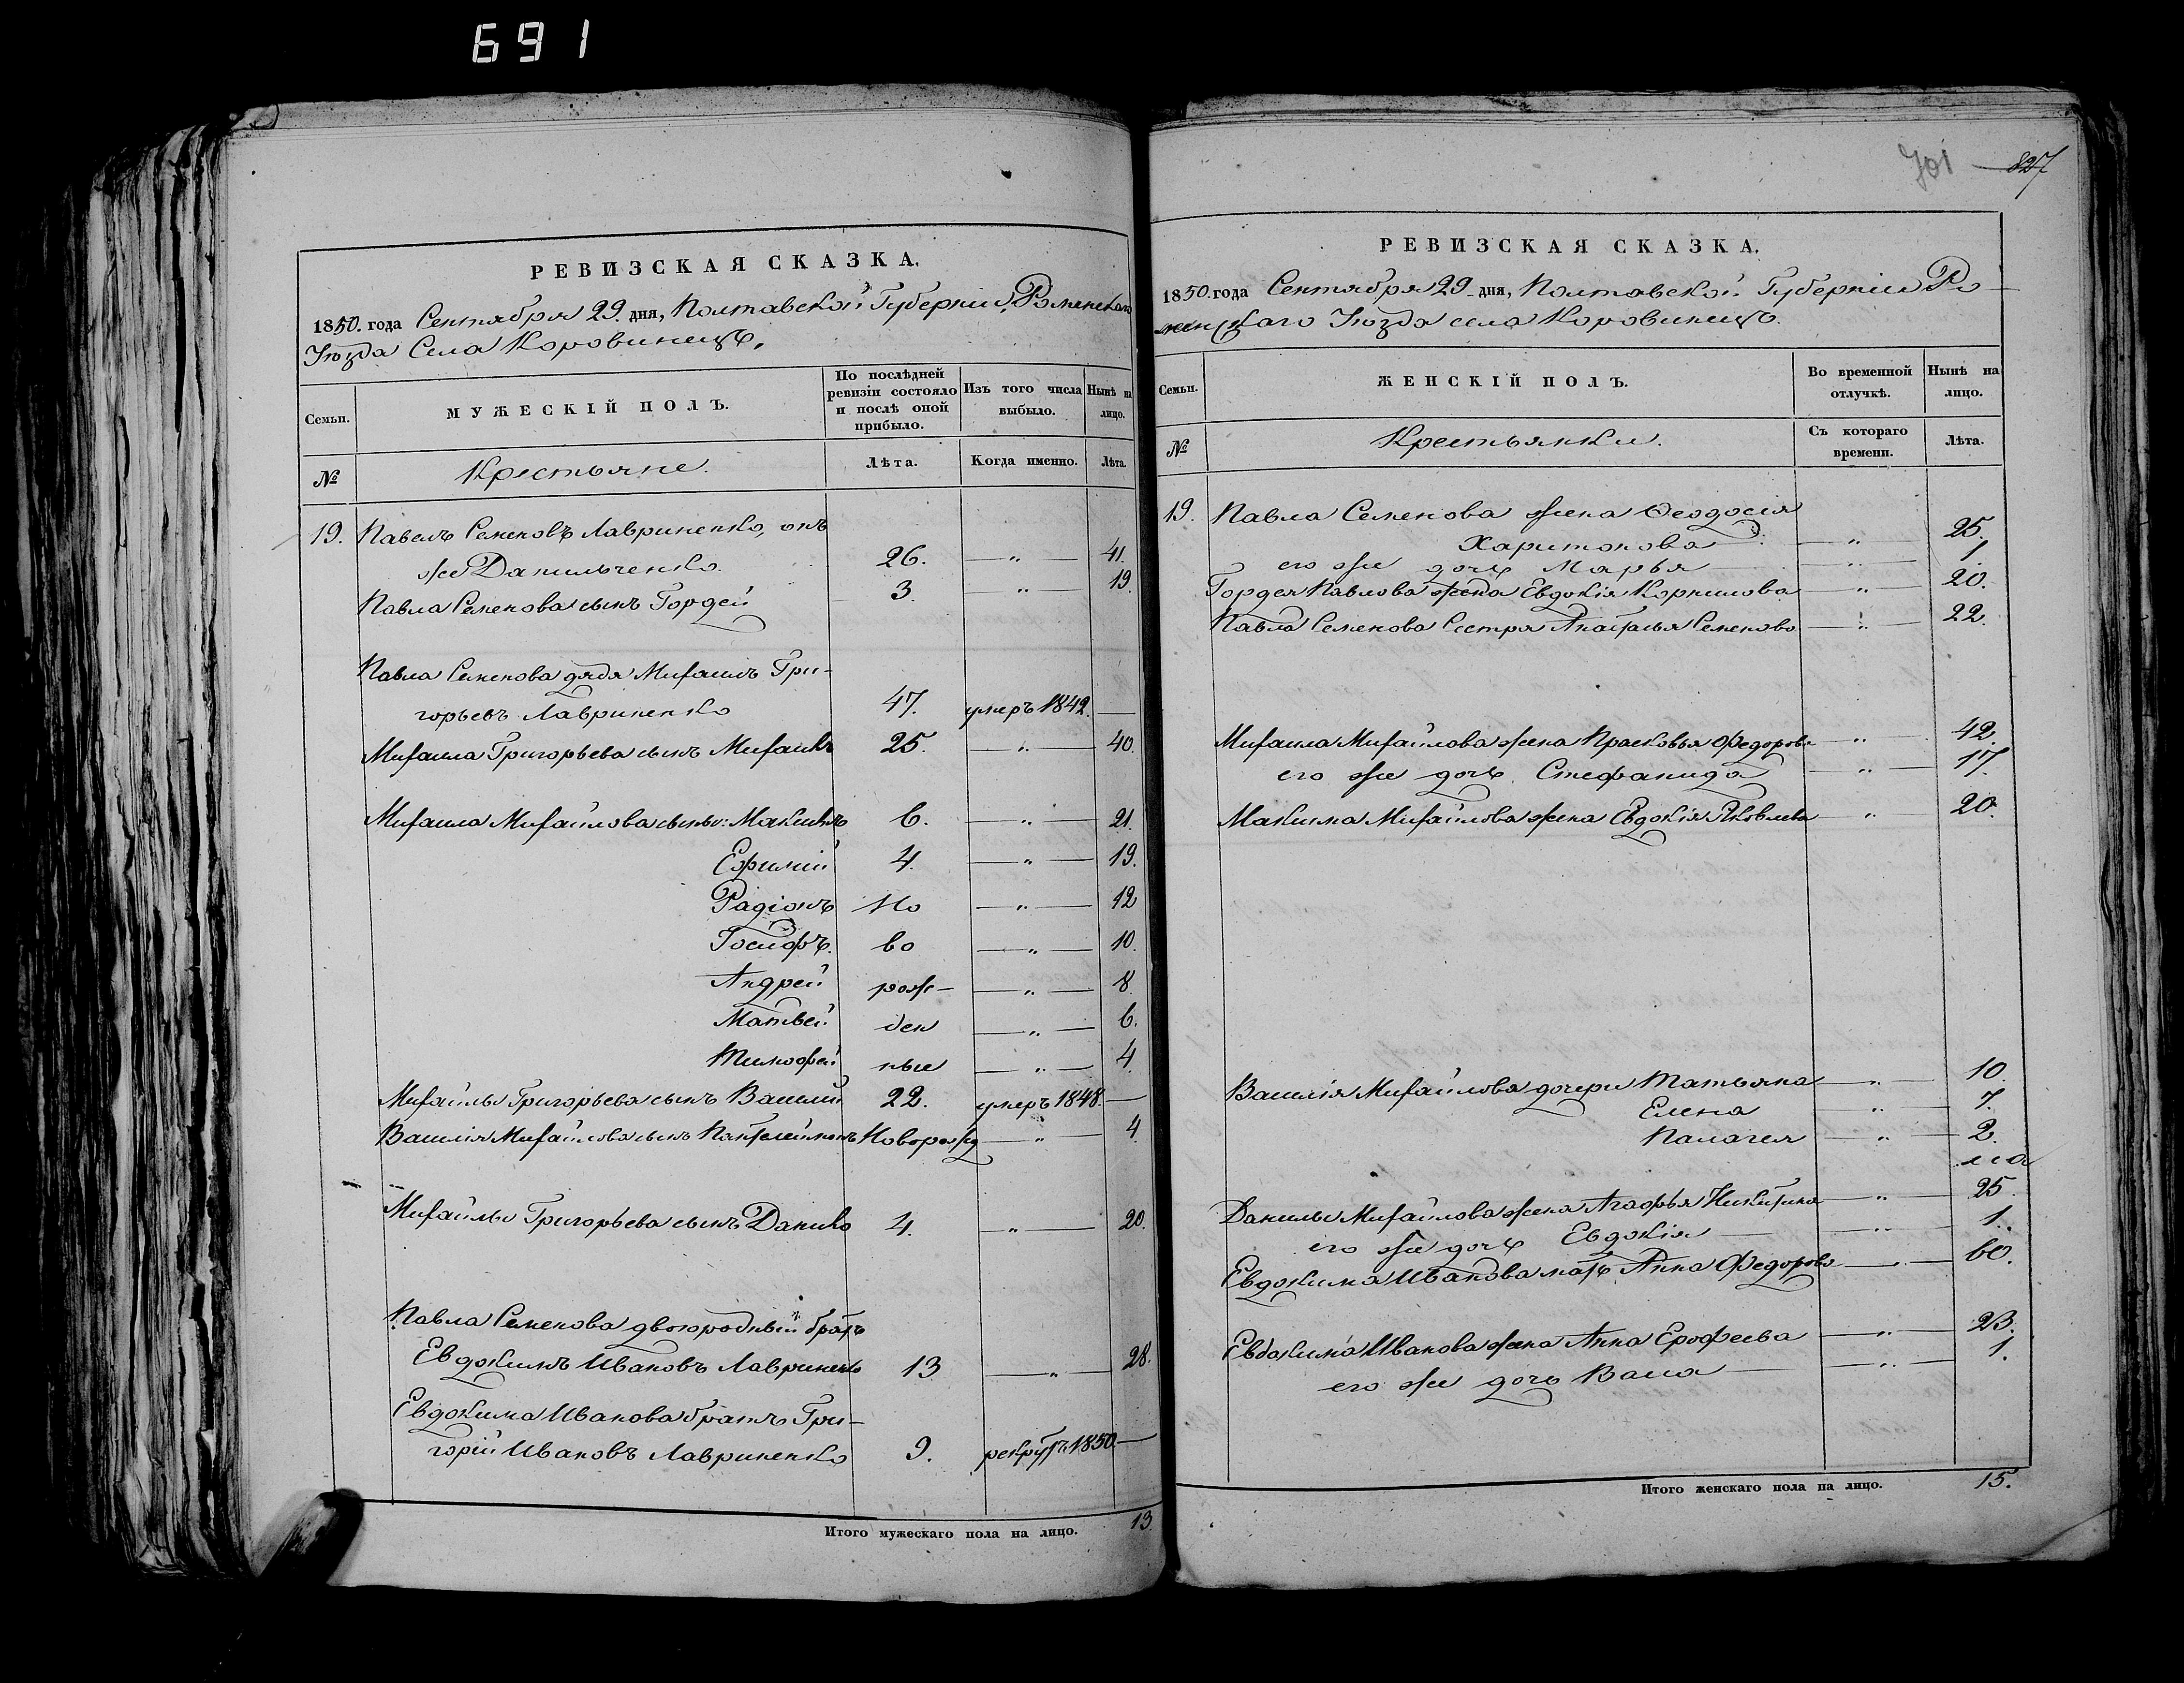 691
РЕВИЗСКАЯ СКАЗКА.
1850. года Сентября 29. дня, Полтавской Губерніи, Роменскаго
Уѣзда Села Коровинецъ.
Семьи.
МУЖЕСКІЙ ПОЛЪ.
По послѣдней ревизіи состояло и послѣ оной прибыло.
Изъ того числа выбыло.
Нынѣ на лицо.
№
Крестьяне.
Лѣта.
Когда именно.
Лѣта.
19. Павелъ Семеновъ Лавриненко, онъ
же Данильченко. 26. — " — 41.
Павла Семенова сынъ Гордей 3. — " — 19.
Павла Семенова дядя Михаилъ Гри-
горьевъ Лавриненко 47. умеръ 1842. —
Михаила Григорьева сынъ Михаилъ 25. — " — 40.
Михаила Михайлова сыны: Максимъ 6. — " — 21.
Ефимій 4. — " — 19.
Радіонъ Но — " — 12
Іосифъ. во — " — 10.
Андрей рож- — " — 8.
Матвей ден — " — 6.
Тимофей ные — " — 4
Михайлы Григорьева сынъ Василій 22. умеръ 1848. —
Василія Михайлова сынъ Пантелеймонъ Новорожд — " — 4
Михайлы Григорьева сынъ Данило 4. — " — 20.
Павла Семенова двоюродный братъ
Евдокимъ Ивановъ Лавриненко 13 — " — 28.
Евдокима Иванова братъ Гри-
горій Ивановъ Лавриненко 9. рекрутъ 1850 —
Итого мужескаго пола на лицо. 13
701 827
РЕВИЗСКАЯ СКАЗКА.
1850. года Сентября 29 дня, Полтавской Губерніи Ро-
менскаго Уѣзда села Коровинецъ.
Семьи.
ЖЕНСКІЙ ПОЛЪ.
Во временной отлучкѣ.
Нынѣ на лицо.
№
Крестьянки.
Съ котораго времени.
Лѣта.
19. Павла Семенова жена Феодосія
Харитонова — " — 25.
его же дочь Марья — " — 1.
Гордея Павлова жена Евдокія Корнилова — " — 20.
Павла Семенова Сестра Анастасья Семенова — " — 22.
Михаила Михайлова жена Прасковья Федорова " 42.
его же дочь Стефанида — " — 17.
Максима Михайлова жена Евдокія Яковлева " 20.
Василія Михайлова дочери Татьяна — " — 10.
Елена — " — 7.
Палагея — " — 2.
Данилы Михайлова жена Агафья Никитина — " — 25.
его же дочь Евдокія — " — 1.
Евдокима Иванова мать Анна Федорова — " — 60.
Евдокима Иванова жена Анна Ерофеева — " — 23.
его же дочь Васа — " — 1.
Итого женскаго пола на лицо. 15.